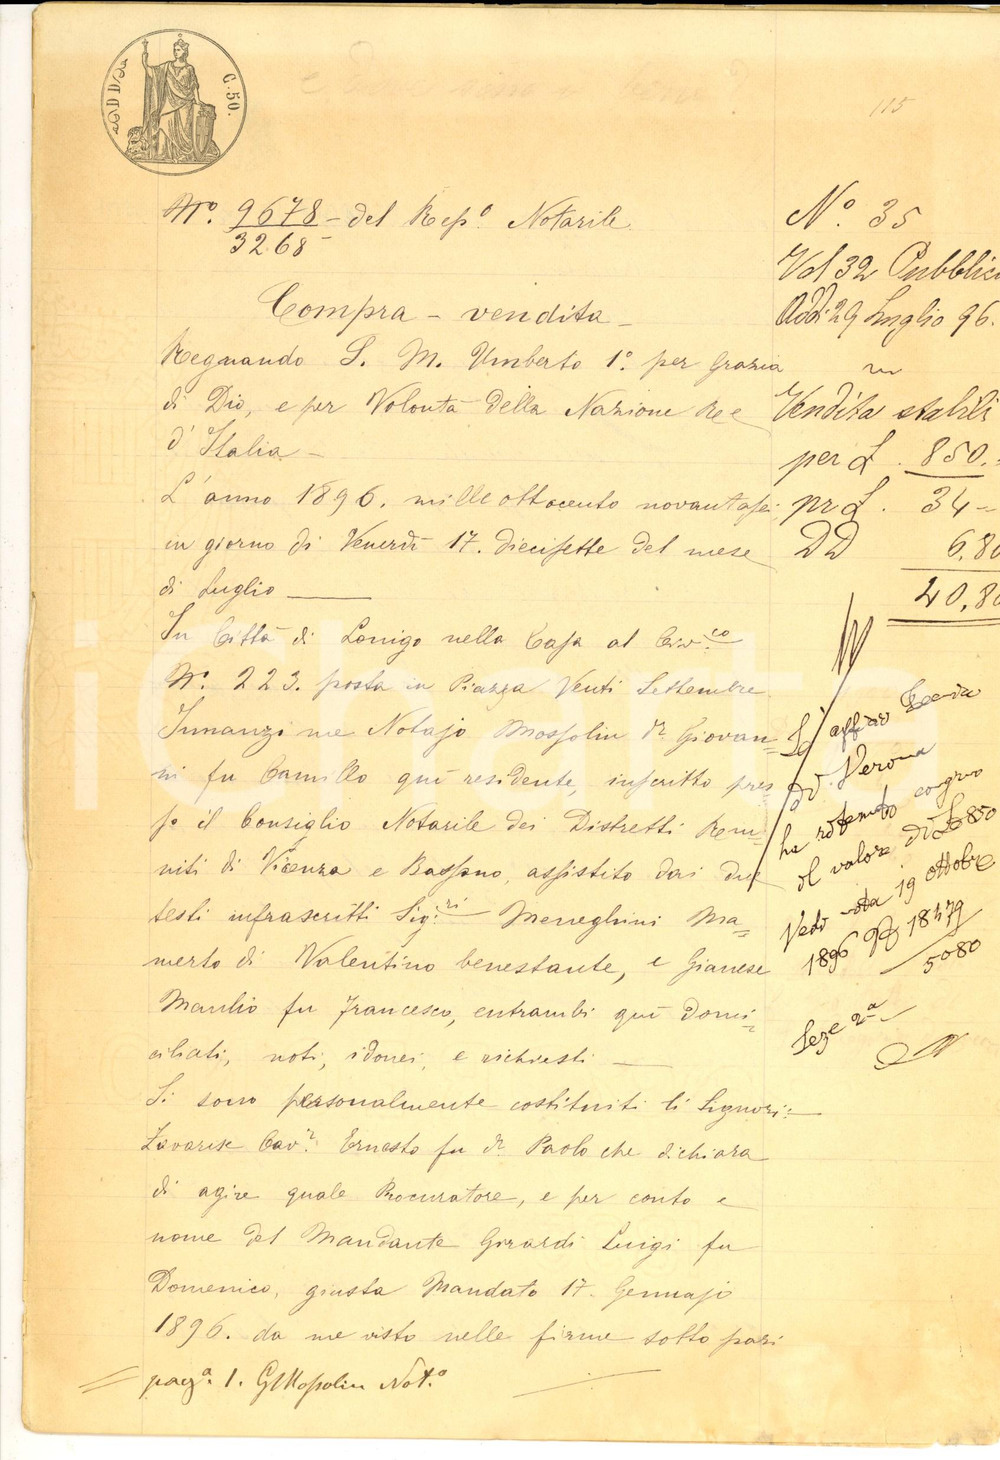 C. 50.
115
N.º 9678 - del Rep.º Notarile
3268
Compra - vendita
Regnando S. M. Umberto 1º. per Grazia
di Dio, e per Volontà della Nazione Re
d'Italia
L'anno 1896. mille ottocento novantasei
in giorno di Venerdì 17. diecisette del mese
di Luglio
In Città di Lonigo nella Casa al Civ.co
N.º 223. posta in Piazza Venti Settembre
Innanzi me Notajo Mossolin Dr Giovan=
ni fu Camillo quì residente, inscritto pres=
so il Consiglio Notarile dei Distretti Riu=
niti di Vicenza e Bassano, assistito dai due
testi infrascritti Sig.ri Meneghini Ma=
merto di Valentino benestante, e Gianese
Manlio fu Francesco, entrambi quì domi=
ciliati, noti, idonei, e richiesti
Si sono personalmente costituiti li Signori:
Zavarise Cav.r Ernesto fu Dr Paolo che dichiara
di agire quale Procuratore, e per conto e
nome del Mandante Girardi Luigi fu
Domenico, giusta Mandato 17. Gennajo
1896. da me visto nelle firme sotto pari
pag.a 1. GMossolin Not.o
Nº. 35
Vol 32 Pubblici
Addì 29 Luglio 96.
Vendita stabili
per L. 850.=
pr L. 34 -
DD 6,80
40,80
di Verona
ha ritenuto congruo
il valore di L 850
Vedi nota 19 ottobre
1896 18479
5080
Sez.e 2ª